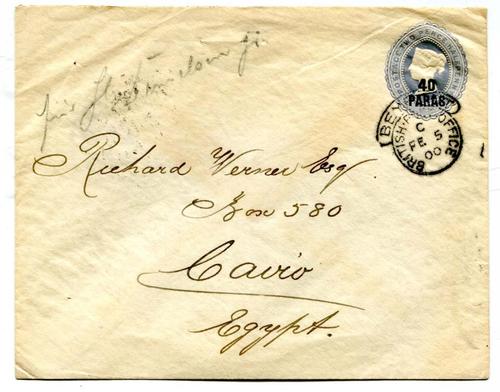 POSTAGE TWO PENCE HALFPENNY
40
PARAS
BRITISH POST OFFICE
C
FE 5
00
Richard Werner Esq
Box 580
Cairo
Egypt.